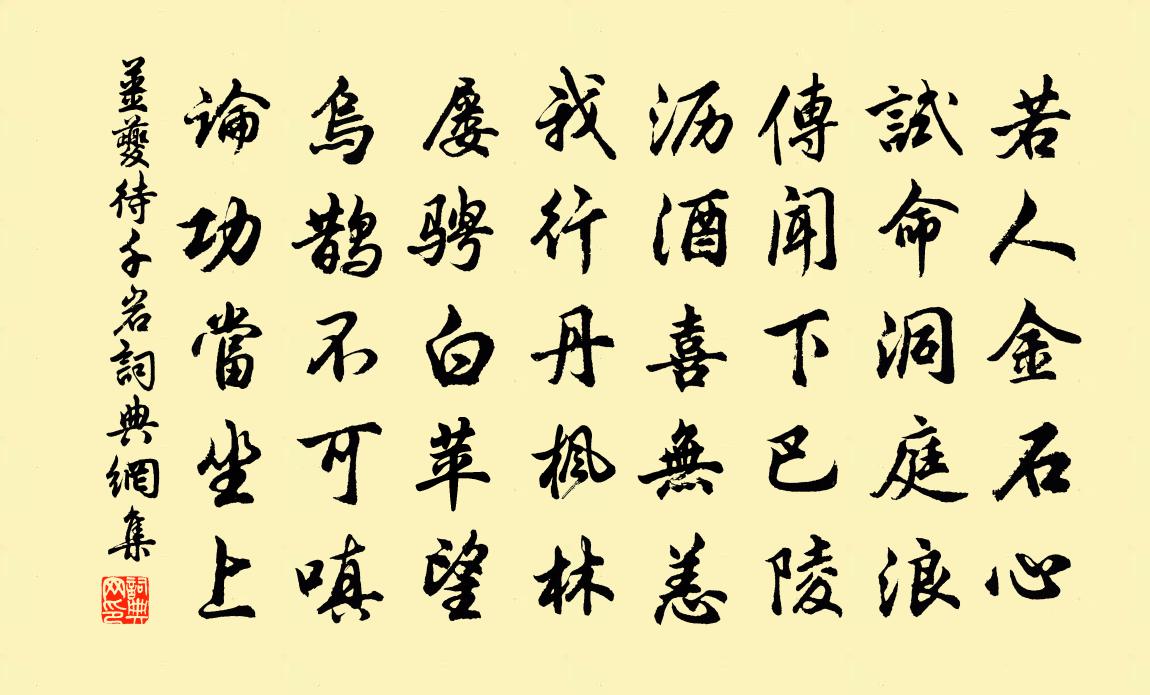 若人金石心
試命洞庭浪
傳聞下巴陵
沥酒喜無恙
我行丹楓林
屡骋白苹望
烏鹊不可嗔
論功當坐上
薑夔待千岩詞典網集
詞典网印